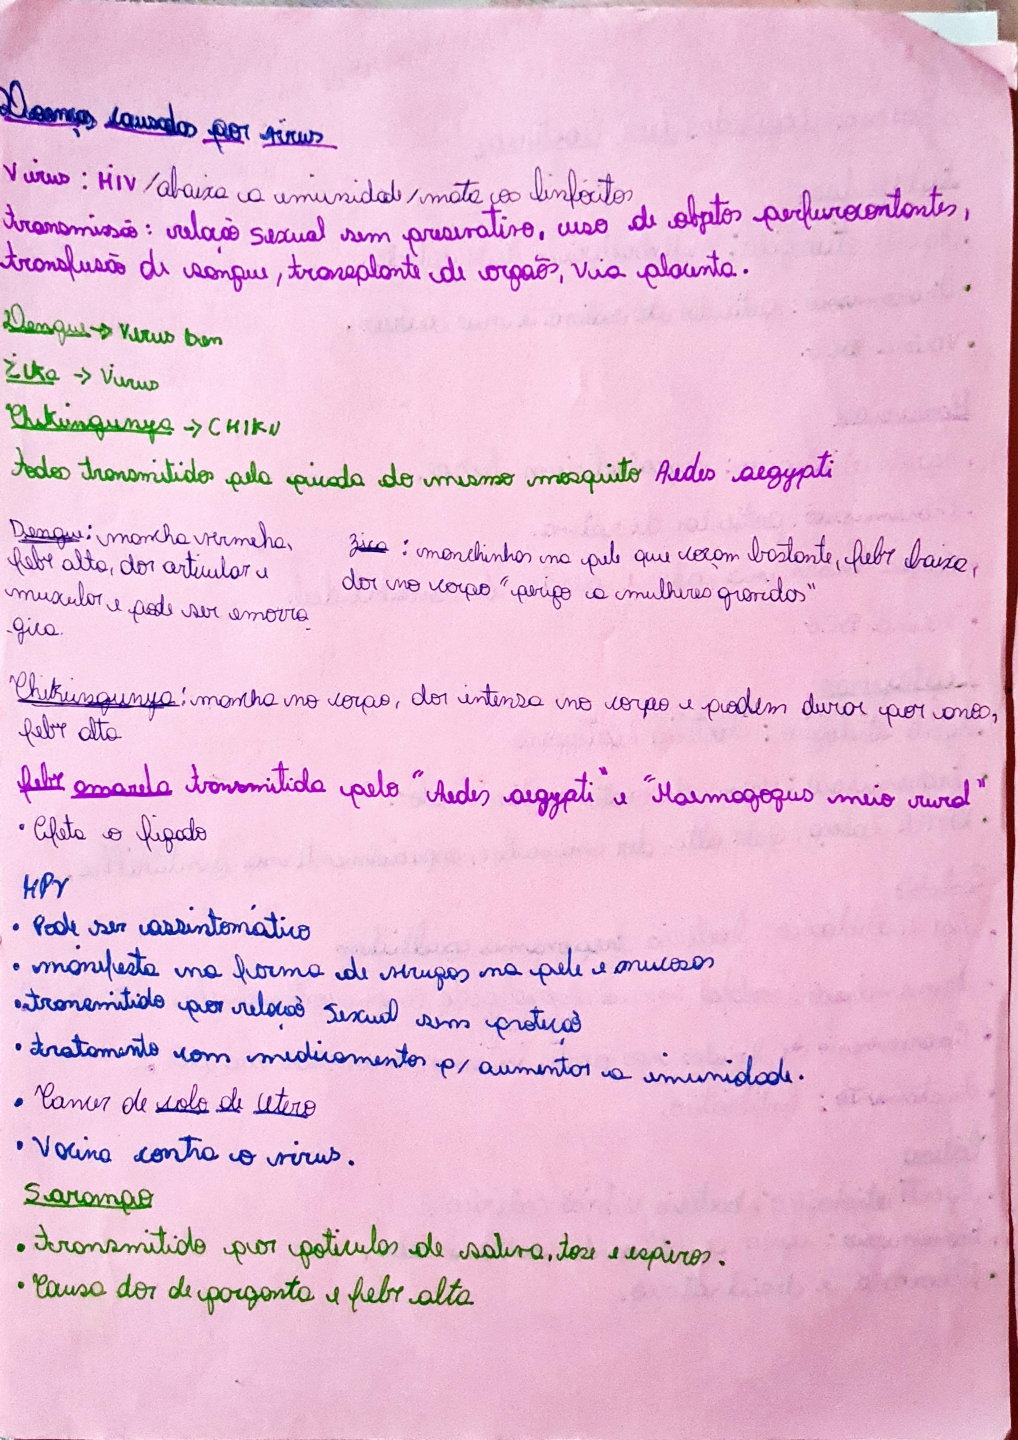 Doenças causadas por vírus
Vírus : HIV / abaixa a imunidade / mata os linfócitos
transmissão : relação sexual sem preservativo, uso de objetos perfurocontantes,
transfusão de sangue, transplante de orgaõs, via placenta.
Dengue → Vírus den
Zika → Vírus
Chikungunya → CHIKV
todos transmitidos pela picada do mesmo mosquito Aedes aegypti
Dengue: mancha vermeha,
febre alta, dor articular e
muscular e pode ser emorra
-gica.
Zica : manchinhas na pele que coçam bastante, febre baixa,
dor no corpo "perigo a mulheres gravidas"
Chikungunya: mancha no corpo, dor intensa no corpo e podem durar por anos,
febre alta
febre amarela transmitida pelo "Aedes aegypti" e "Haemagogus meio rural"
• Afeta o figado
HPV
• Pode ser assintomático
• manifesta na forma de verugas na pele e mucosas
• transmitido por relação sexual sem proteção
• tratamento com medicamentos p/ aumentar a imunidade.
• Cancer de colo de utero
• Vacina contra o vírus.
Sarampo
• transmitido por poticulas de saliva, tose e espiros.
• Causa dor de garganta e febre alta